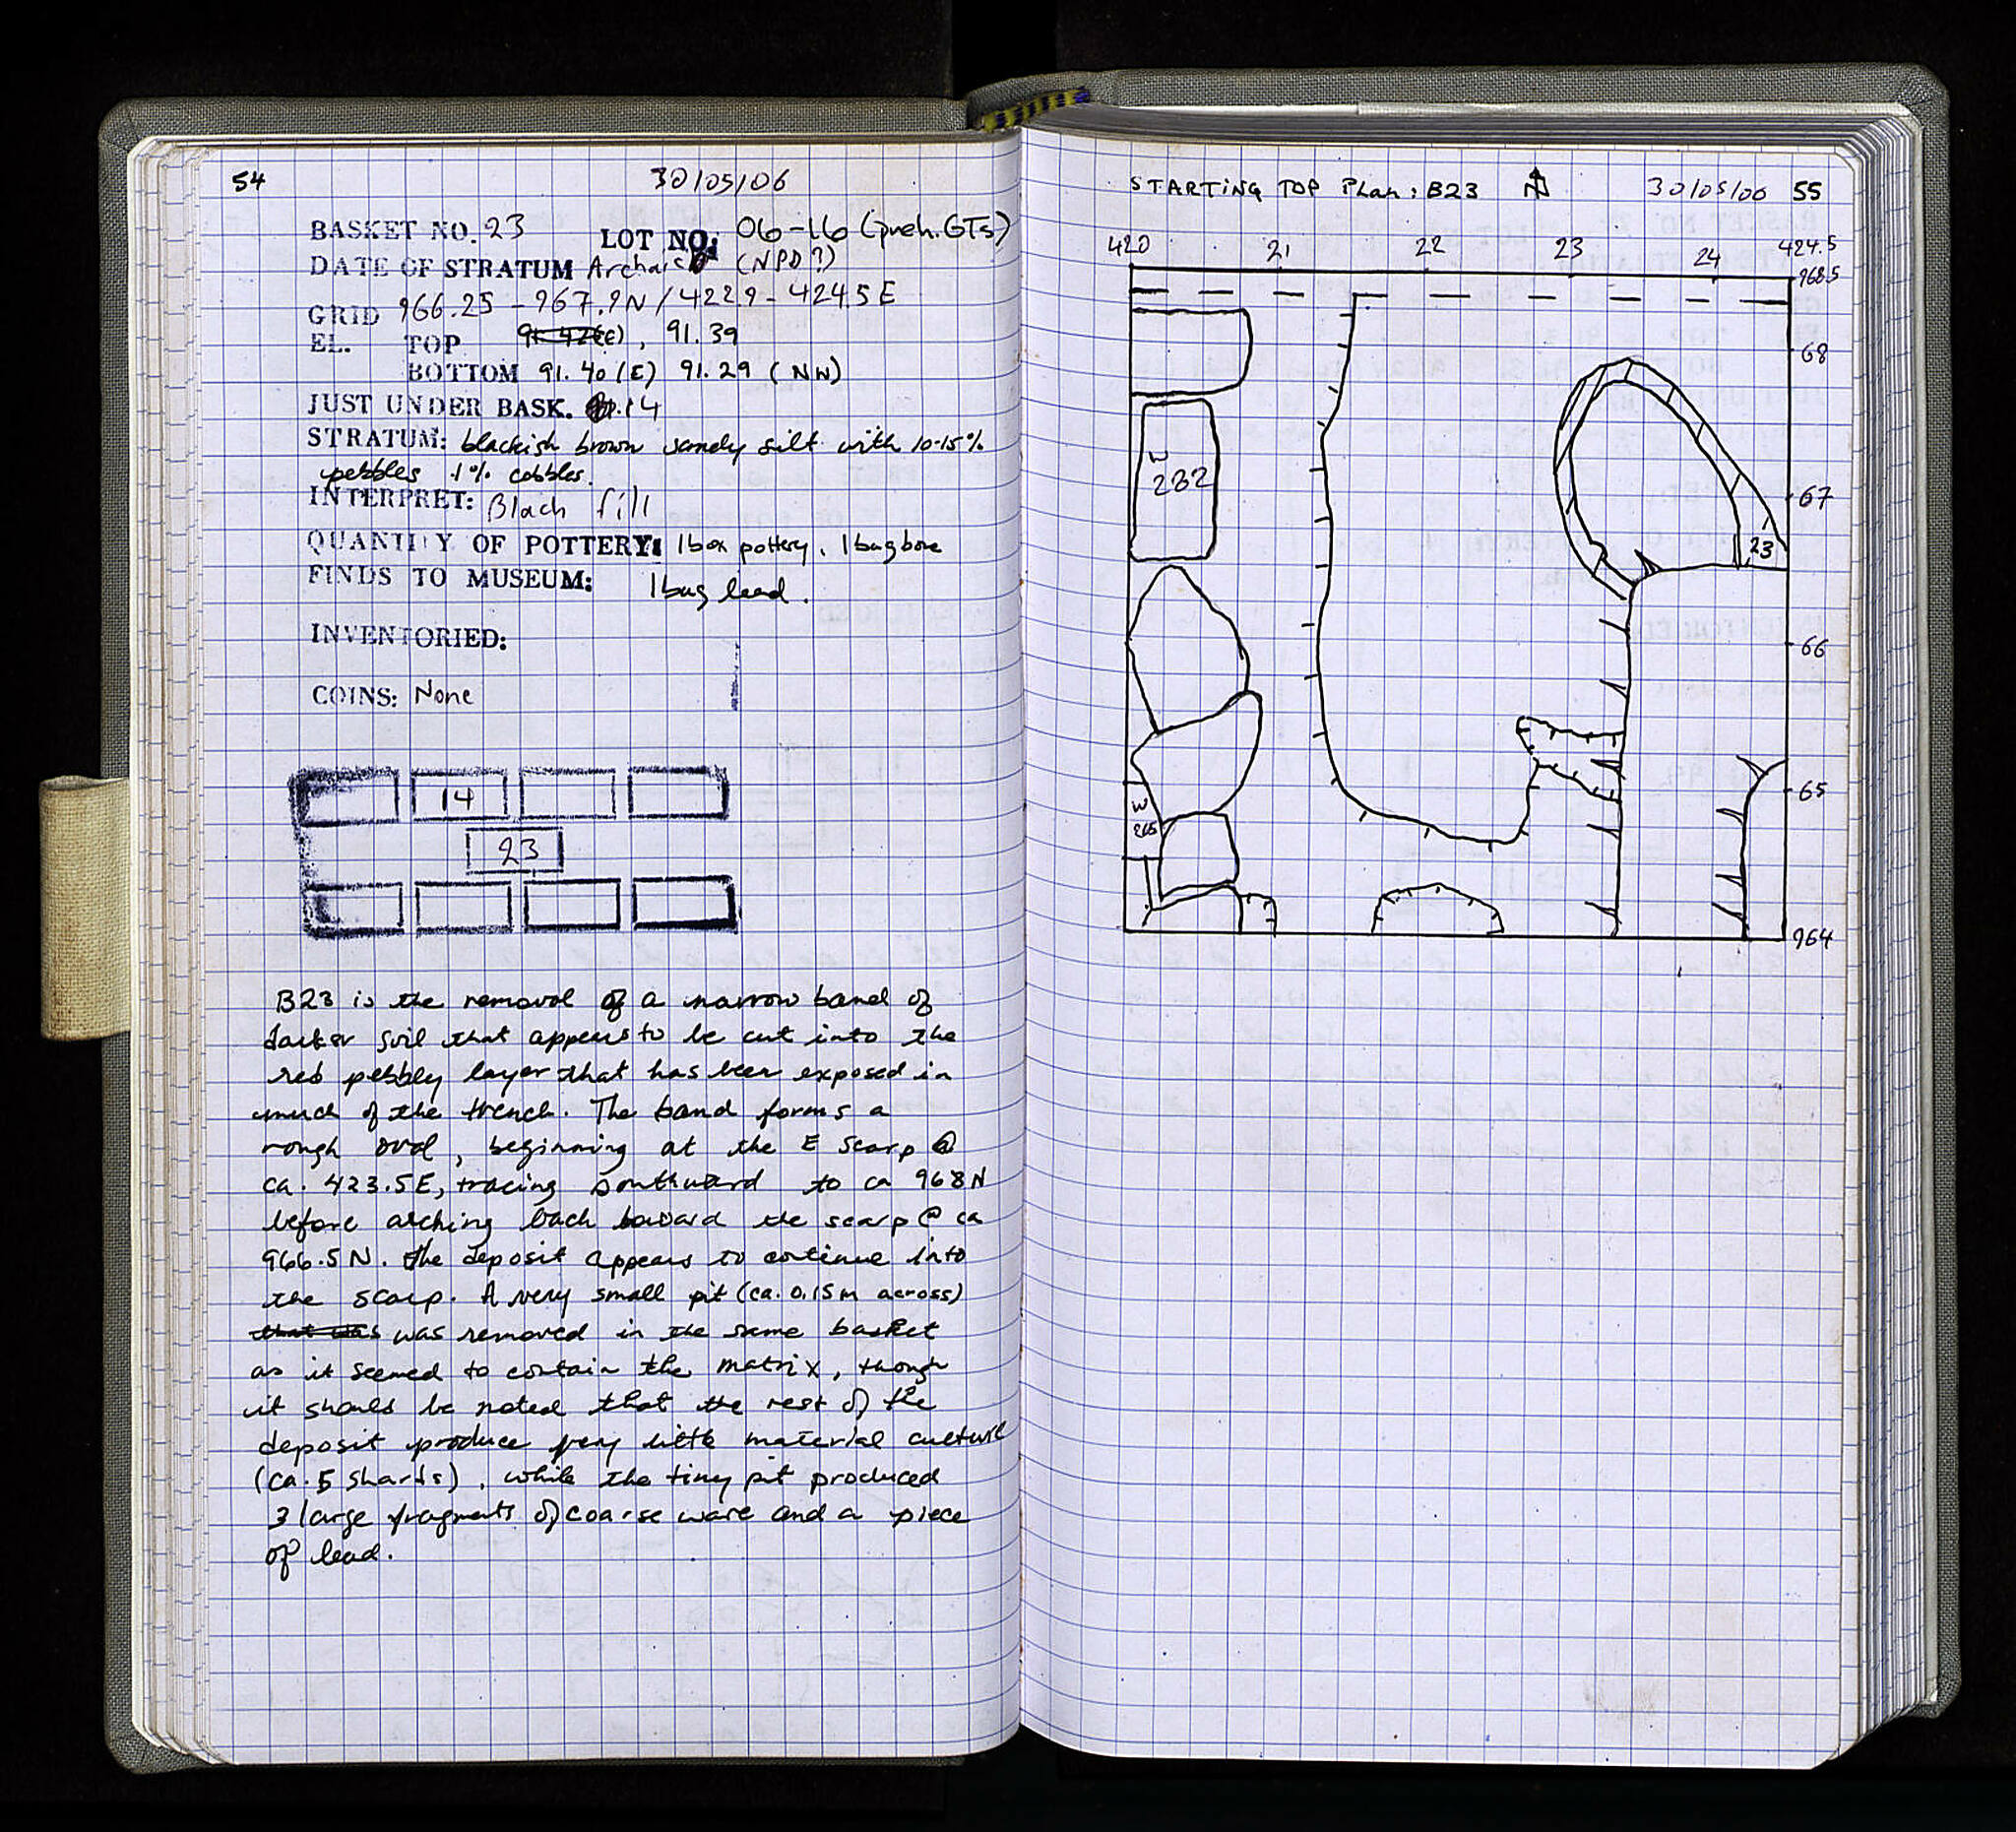 54
30/05/06
BASKET NO. 23 LOT NO: 06-16 (preh. GTs)
DATE OF STRATUM Archaic (NPD?)
GRID 966.25 - 967.9N / 422.9 - 424.5 E
EL. TOP 91.42(E), 91.39
BOTTOM 91.40 (E) 91.29 (NW)
JUST UNDER BASK. 14
STRATUM: blackish brown sandy silt with 10-15%
pebbles 1% cobbles.
INTERPRET: Black fill
QUANTITY OF POTTERY: 1 box pottery, 1 bag bone
FINDS TO MUSEUM: 1 bag lead.
INVENTORIED:
COINS: None
14
23
B23 is the removal of a narrow band of
darker soil that appears to be cut into the
red pebbly layer that has been exposed in
much of the trench. The band forms a
rough oval, beginning at the E scarp @
ca. 423.5E, tracing southward to ca 968N
before arching back toward the scarp @ ca
966.5N. The deposit appears to continue into
the scarp. A very small pit (ca. 0.15m across)
that was was removed in the same basket
as it seemed to contain the matrix, though
it should be noted that the rest of the
deposit produce very little material culture
(ca. 5 shards), while the tiny pit produced
3 large fragments of coarse ware and a piece
of lead.
STARTING TOP PLAN: B23 N 30/05/06 55
420 21 22 23 24 424.5
968.5
68
W
232
67
23
66
65
W
265
964